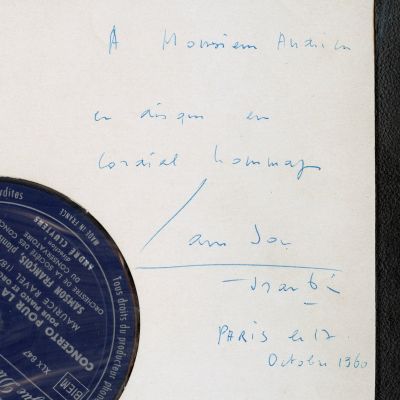 A Monsieur
ce disque en
cordial hommage
Samson
François
PARIS le 17
Octobre 1960
MADE IN FRANCE
ANDRÉ CLUYTENS
ORCHESTRE DE LA SOCIÉTÉ DES CONC
DU CONSERVATOIRE
SAMSON FRANÇOIS
MAURICE RAVEL
POUR PIANO
CONCERTO POUR LA
XLX 847
BIEM
Tous droits du producteur phono